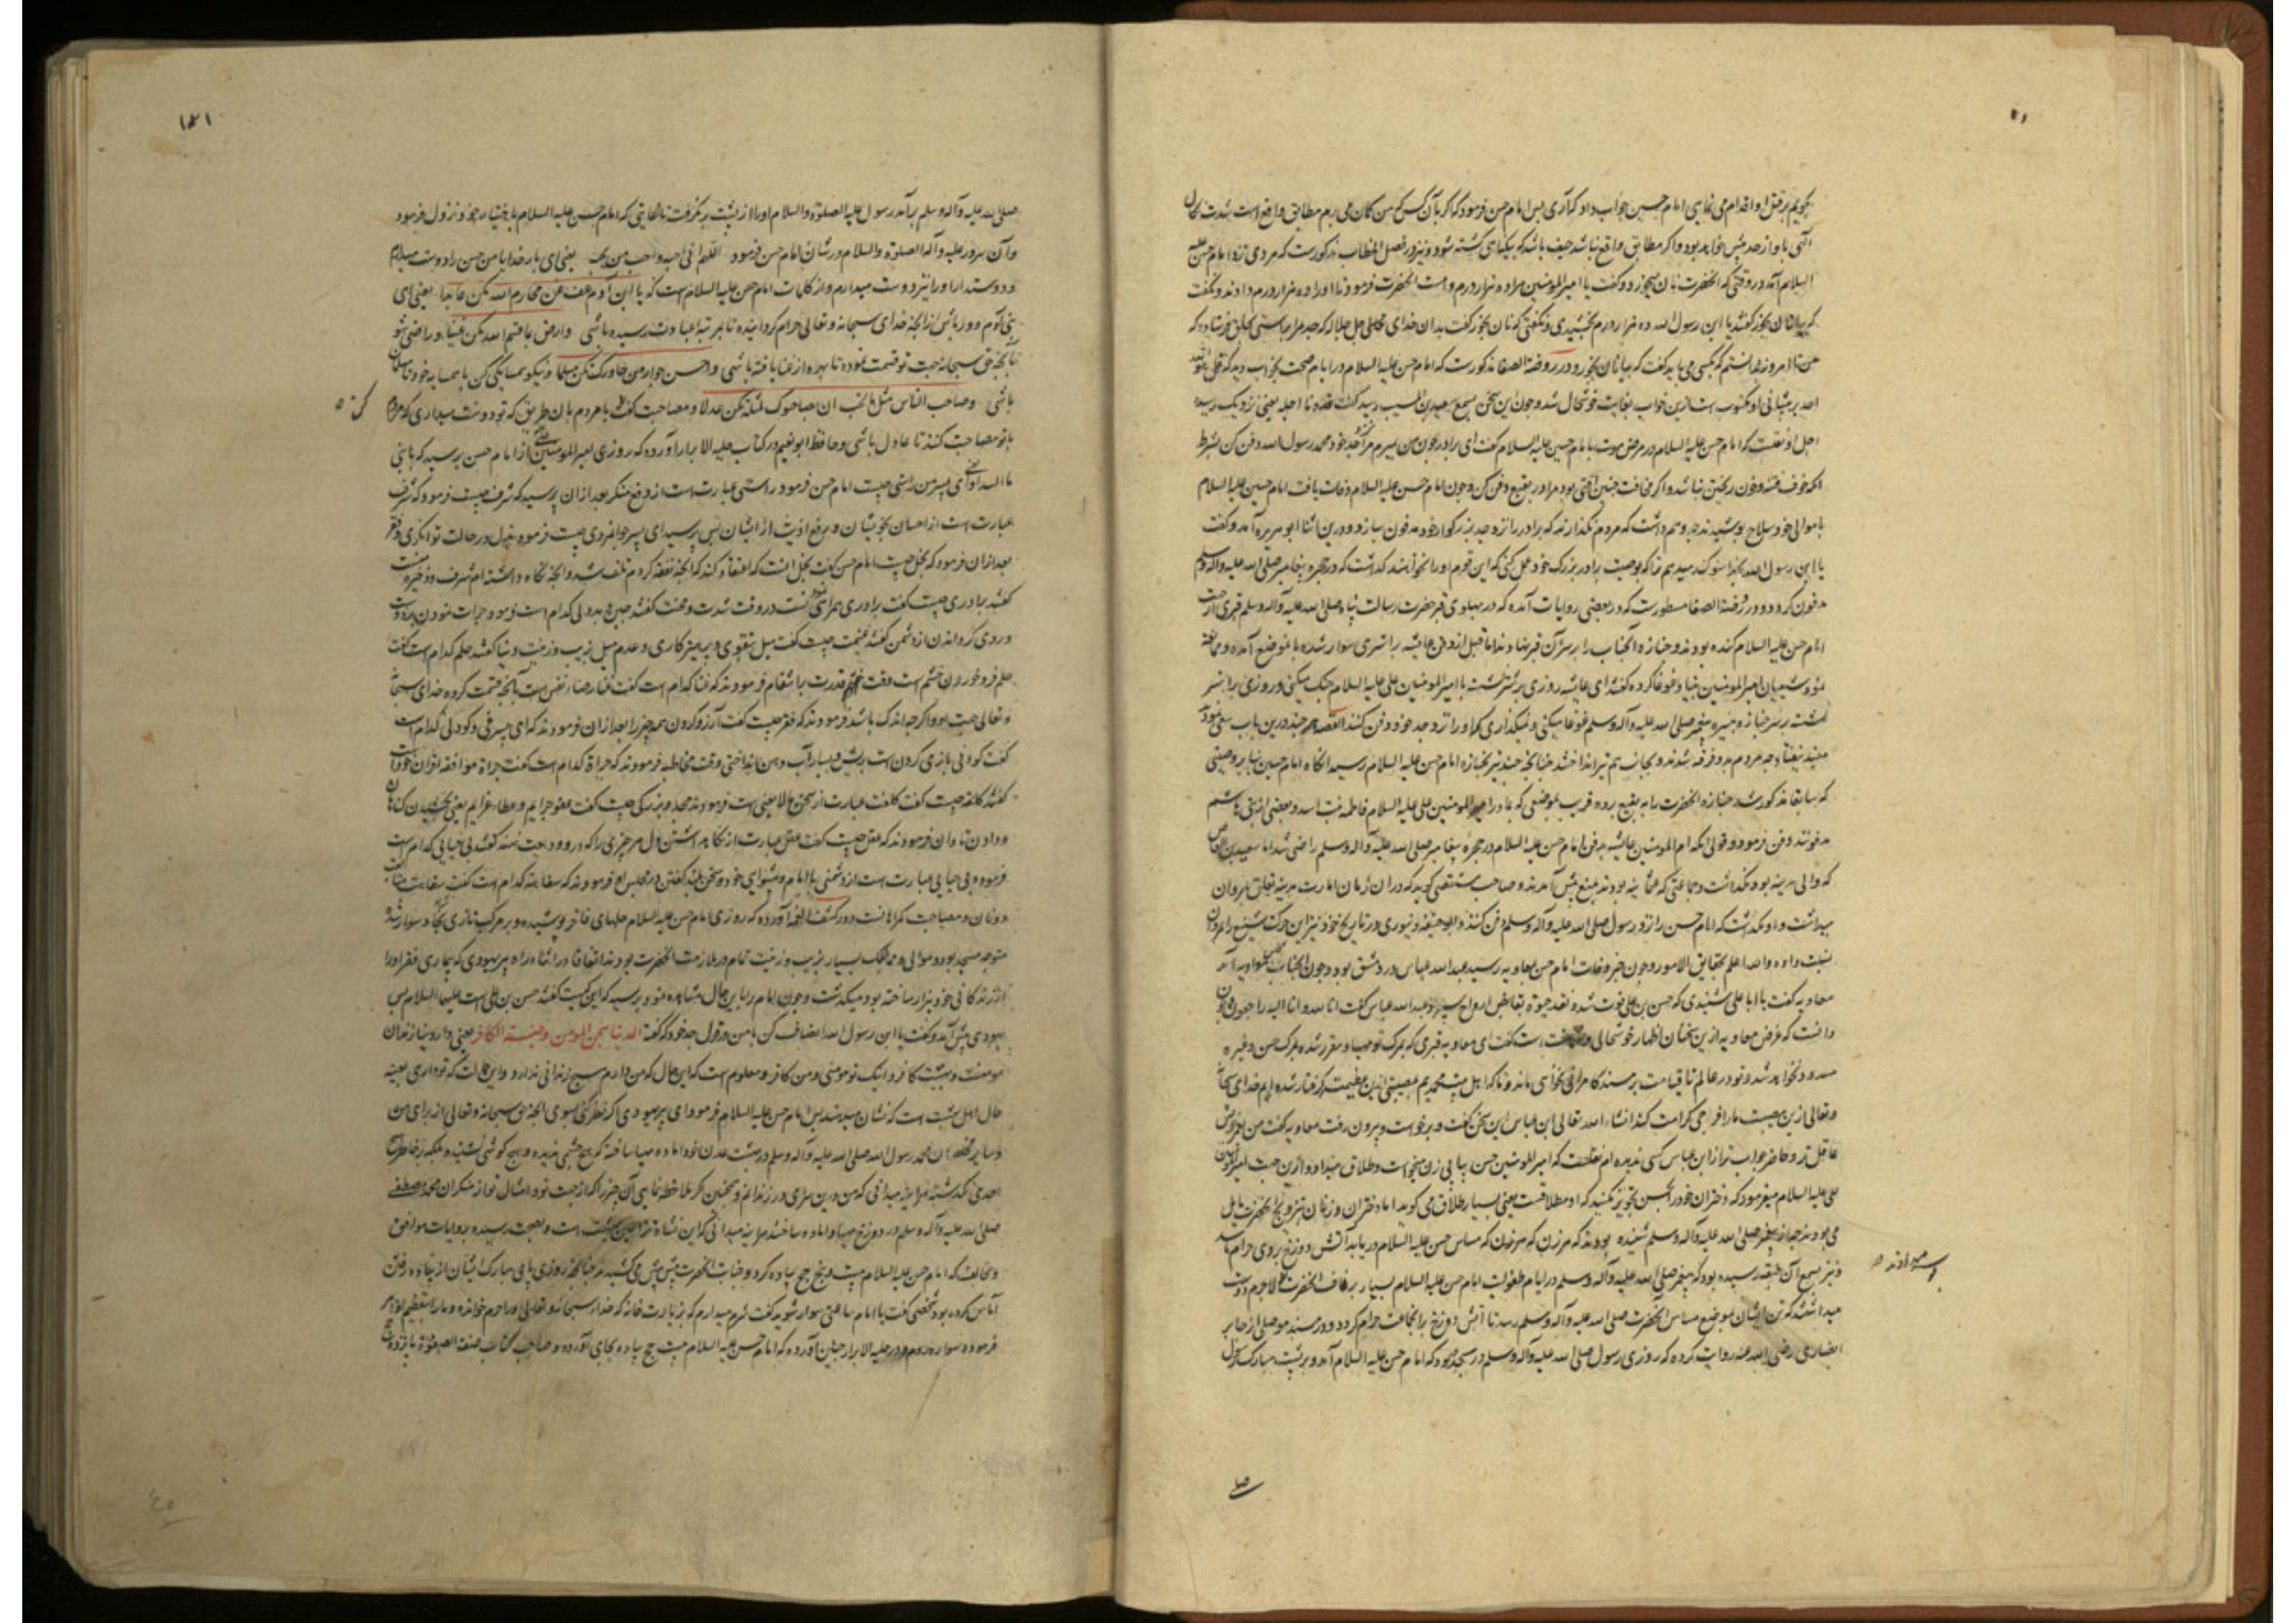 بگویم بر قتل او اقدام می نمایی امام حسین جواب داد که آری پس امام حسن فرمود که اگر آن کس که من گمان می برم مطابق واقع است شدت نکال
الهی با و از حد بیش خواهد بود و اگر مطابق واقع نباشد حیف باشد که بیگناهی کشته شود و نیز در فصل الخطاب مذکورست که مردی نزد امام حسن علیه
السلام آمد در وقتی که آنحضرت نان میخورد و گفت یا امیر المومنین مرا ده هزار درم وام است آنحضرت فرمود تا او را ده هزار درم دادند و نگفت
که بیا نان بخور گفتند یا ابن رسول الله ده هزار درم بخشیدی و نگفتی که نان بخور گفت بدان خدای تعالی جل جلاله که جد مرا براستی بخلق فرستاده که
من تا امروز ندانستم که بکسی می باید گفت که بیا نان بخور و در روضة الصفا مذکورست که امام حسن علیه السلام در ایام صحت بخواب دید که قل هو الله
احد بر پیشانی او مکتوب است ازین خواب بغایت خوشحال شد و چون این سخن بسمع سعید بن المسیب رسید گفت اجله یعنی نزدیک رسید
اجل او نقلست که امام حسن علیه السلام در مرض موت با امام حسین علیه السلام گفت ای برادر چون من بمیرم مرا نزد جد خود محمد رسول الله دفن کن بشرط
آنکه خوف فتنه و خون ریختن نباشد و اگر مخافت چنین آفتی بود مرا در بقیع دفن کن و چون امام حسن علیه السلام وفات یافت امام حسین علیه السلام
با موالی خود سلاح پوشیدند چه وهم داشت که مردم نگذارند که برادر را نزد جد بزرگوار خود مدفون سازد و درین اثنا ابو هریره آمد و گفت
یا ابن رسول الله بخدا سوگند میدهم ترا که بوصیت برادر بزرگ خود عمل کنی که این قوم او را نخواهند گذاشت که در حجره پیغامبر صلی الله علیه و آله وسلم
مدفون گردد و در روضة الصفا مسطورست که در بعضی روایات آمده که در پهلوی قبر حضرت رسالت پناه صلی الله علیه و آله وسلم قبری از جهت
امام حسن علیه السلام کنده بودند و جنازه آنجناب را بر سر آن قبر نهادند اما قبل از دفن عایشه بر استری سوار شده با موضع آمده و ممانعه
نمود شیعیان امیر المومنین بنیاد غوغا کرده گفتند ای عایشه روزی بر شتر نشسته با امیر المومنین علی علیه السلام جنک میکنی و روزی بر استر
نشسته بر سر جنازه نبیره پیغمبر صلی الله علیه و آله وسلم غوغا میکنی و نمیگذاری که او را نزد جد خود دفن کنند القصه هر چند درین باب سعی نمود
مفید نیفتاد چه مردم دو فرقه شدند و بجانب هم تیر انداختند چنانچه چند تیر بجنازه امام حسن علیه السلام رسید آنگاه امام حسین بنابر وصیتی
که سابقا مذکور شد جنازه آنحضرت را به بقیع برده قریب بموضعی که مادر امیر المومنین علی علیه السلام فاطمه بنت اسد و بعضی از بنی هاشم
مدفونند دفن فرمود و قولی آنکه ام المومنین عایشه بدفن امام حسن علیه السلام در حجره پیغامبر صلی الله علیه و آله وسلم راضی شد اما سعید بن العاص
که والی مدینه بود نگذاشت و جماعتی که عثمانیه بودند بمنع پیش آمدند و صاحب مستقصی گوید که در آن زمان امارت مدینه تعلق بمروان
میداشت و او نگذاشت که امام حسن را نزد رسول صلی الله علیه و آله وسلم دفن کنند و ابو حنیفه دینوری در تاریخ خود نیز این حرکت شنیع را بمروان
نسبت داده والله اعلم بحقایق الامور و چون خبر وفات امام حسن بمعاویه رسید عبدالله عباس در دمشق بود و چون آنجناب بمجلس معاویه آمد
معاویه گفت یا ابا علی شنیدی که حسن بن علی فوت شده و نقد حیوة بقابض ارواح سپرد عبدالله عباس گفت انا لله و انا الیه راجعون و چون
دانست که غرض معاویه ازین سخنان اظهار خوشحالی است گفت ای معاویه قبری که بمرک تو مهیا و مقرر شده بمرک حسن و غیره
مسدود نخواهد شد و تو در عالم تا قیامت بر مسند کامرانی نخواهی ماند و ما که اهل بیت محمدیم بمصیبتی ازین عظیمتر گرفتار شده ایم خدای سبحانه
و تعالی ازین مصیبت ما را فرجی کرامت کند انشاء الله تعالی ابن عباس این سخن گفت و برخواست و بیرون رفت معاویه گفت من
عاقل تر و حاضر جواب تر از ابن عباس کسی ندیده ام نقلست که امیر المومنین حسن بیاپی زن میخواست و طلاق میداد و ازین جهت امیر المومنین
علی علیه السلام میفرمود که دختران خود را بحسن تجویز نکنید که او مطلاقست یعنی بسیار طلاق می گوید اما دختران و زنان بتزویج آنحضرت مایل
می بودند چه از پیغمبر صلی الله علیه و آله وسلم شنیده بودند که هر زن که مساس حسن علیه السلام دریابد آتش دوزخ بر وی حرام باشد
و نیز بسمع آن طبقه رسیده بود که پیغمبر صلی الله علیه و آله وسلم در ایام طفولیت امام حسن علیه السلام بسیار بر ناف آنحضرت لاجرم دوست
میداشتند که تن ایشان بموضع مساس آنحضرت صلی الله علیه و آله وسلم رسد تا آتش دوزخ بر آنجماعت حرام گردد و در مسند موصلی از جابر
انصاری رضی الله عنه روایت کرده که روزی رسول صلی الله علیه و آله وسلم در سجده بود که امام حسن علیه السلام آمد و بر پشت مبارک رسول
صلی
۱۴۱
صلی الله علیه و آله وسلم برآمد رسول علیه الصلوة والسلام او را از پشت بر نگرفت تا بغایتی که امام حسن علیه السلام باختیار خود نزول فرمود
و آن سرور علیه و آله الصلوة والسلام در شان امام حسن فرمود اللهم انی احبه و احب من یحبه یعنی ای بار خدایا من حسن را دوست میدارم
و دوستدار او را نیز دوست میدارم و از کلمات امام حسن علیه السلام است که یا ابن آدم عف عن محارم الله تکن عابدا یعنی ای
بنی آدم دور باش از آنچه خدای سبحانه و تعالی حرام گردانیده تا بمرتبه عبادت رسیده باشی وارض بما قسم الله تکن غنیا و راضی شو
بآنچه حق سبحانه جهت تو قسمت نموده تا بهره از غنا یافته باشی و احسن جوار من جاورک تکن مسلما و نیکو همسایگی کن با همسایه خود تا مسلمان
باشی وصاحب الناس مثل ما تحب ان یصاحبوک بمثله تکن عدلا و مصاحبت کن با مردم بآن طریق که تو دوست میداری که مردم
با تو مصاحبت کنند تا عادل باشی و حافظ ابو نعیم در کتاب حلیة الابرار آورده که روزی امیر المومنین علی از امام حسن پرسید که یا بنی
ما السداد ای پسر من راستی چیست امام حسن فرمود راستی عبارت است از دفع منکر بعد از آن پرسید که شرف چیست فرمود که شرف
عبارت است از احسان بخویشان و برفع اذیت از ایشان پس پرسید ای پسر جوانمردی چیست فرمود بذل در حالت توانگری و فقر
بعد از آن فرمود که بخل چیست امام حسن گفت بخل آنست که اعتقاد کند که آنچه نفقه کردم تلف شد و آنچه نگاه داشته ام شرف و ذخیره منست
گفتند برادری چیست گفت برادری همراهی است در وقت شدت و محنت گفتند جبن و بددلی کدام است فرمود جرات نمودن بر دوست
و روی گردانیدن از دشمن گفتند غنیمت چیست گفت میل بتقوی و پرهیزکاری و عدم میل بزیب و زینت دنیا گفتند حلم کدام است گفت
حلم فرو خوردن خشم است وقت قدرت بانتقام فرمودند که غنا کدام است گفت غنا رضاء نفس است بآنچه قسمت کرده خدای سبحانه
و تعالی جهت او و اگر چه اندک باشد فرمودند که فقر چیست گفت آرزو کردن همه چیز را بعد از آن فرمودند که ای پسر کودنی کدام است
گفت کودنی بازی کردن است بریش و بسیار آب دهن انداختن وقت مخاطبه فرمودند که جراة کدام است گفت جراة موافقه اقران خود است
گفتند کلفه چیست گفت کلفت عبارت از سخن مالایعنی است فرمودند مجد و بزرگی چیست گفت عفو جرایم و عطاء غرایم یعنی بخشیدن گناهان
و دادن تاوان فرمودند که عقل چیست گفت عقل عبارت از نگاه داشتن دل هر چیزی را که درو ودیعت نهند گفتند بی حیایی کدام است
فرمود بی حیایی عبارت است از دشمنی با امام و پیشوای خود و سخن بلند گفتن در مجلس او فرمودند که سفاهه کدام است گفت سفاهت متابعت
دونان و مصاحبت گمراهانست و در کشف الغمه آورده که روزی امام حسن علیه السلام حلهای فاخر پوشیده و بر مرکب تازی نژاد سوار شده
متوجه مسجد بود و موالی و ممالیک بسیار بزیب و زینت تمام در ملازمت آنحضرت بودند اتفاقا در اثناء راه پیر یهودی که بیماری فقر او را
از زندگانی خود بیزار ساخته بود میگذشت و چون امام را باین حال مشاهده نمود پرسید که این کیست گفتند حسن بن علی است علیهما السلام پس
یهودی پیش آمد و گفت یا ابن رسول الله انصاف کن با من در قول جد خود که گفته الدنیا سجن المومن و جنة الکافر یعنی دار دنیا زندان
مومنست و بهشت کافر و اینک تو مومنی و من کافر و معلوم است که این حال که من دارم هیچ زندانی ندارد و این حالت که تو داری بعینه
حال اهل بهشت است که نشان میدهند پس امام حسن علیه السلام فرمود ای پیر یهودی اگر نظر کنی بسوی آنچه حق سبحانه و تعالی از برای من
و سایر محبان محمد رسول الله صلی الله علیه و آله وسلم در بهشت عدن آماده مهیا ساخته که هیچ چشمی ندیده و هیچ گوشی نشنیده بلکه بر خاطر هیچ
احدی نگذشته هر آینه میدانی که من درین سرای در زندانم و همچنین اگر ملاحظه نمایی آن چیز را که از جهت تو و امثال تو از منکران محمد مصطفی
صلی الله علیه و آله وسلم در دوزخ مهیا و آماده ساخته اند هر آینه میدانی که این نشاة ترا عین بهشت است و بصحت رسیده بروایات موافق
و مخالف که امام حسن علیه السلام بیست و پنج حج پیاده کرد و جنیبات آنحضرت پیش پیش می کشیدند چنانچه روزی پای مبارک ایشان از پیاده رفتن
آماس کرده بود شخصی گفت یا امام ساعتی سوار شوید گفت شرم میدارم که بزیارت خانه که خداء سبحانه و تعالی او را حرم خوانده و ما را بتعظیم او امر
فرموده سواره روم و در حلیة الابرار چنین آورده که امام حسن علیه السلام بیست حج پیاده بجای آورده و صاحب کتاب صفة الصفوة پانزده حج